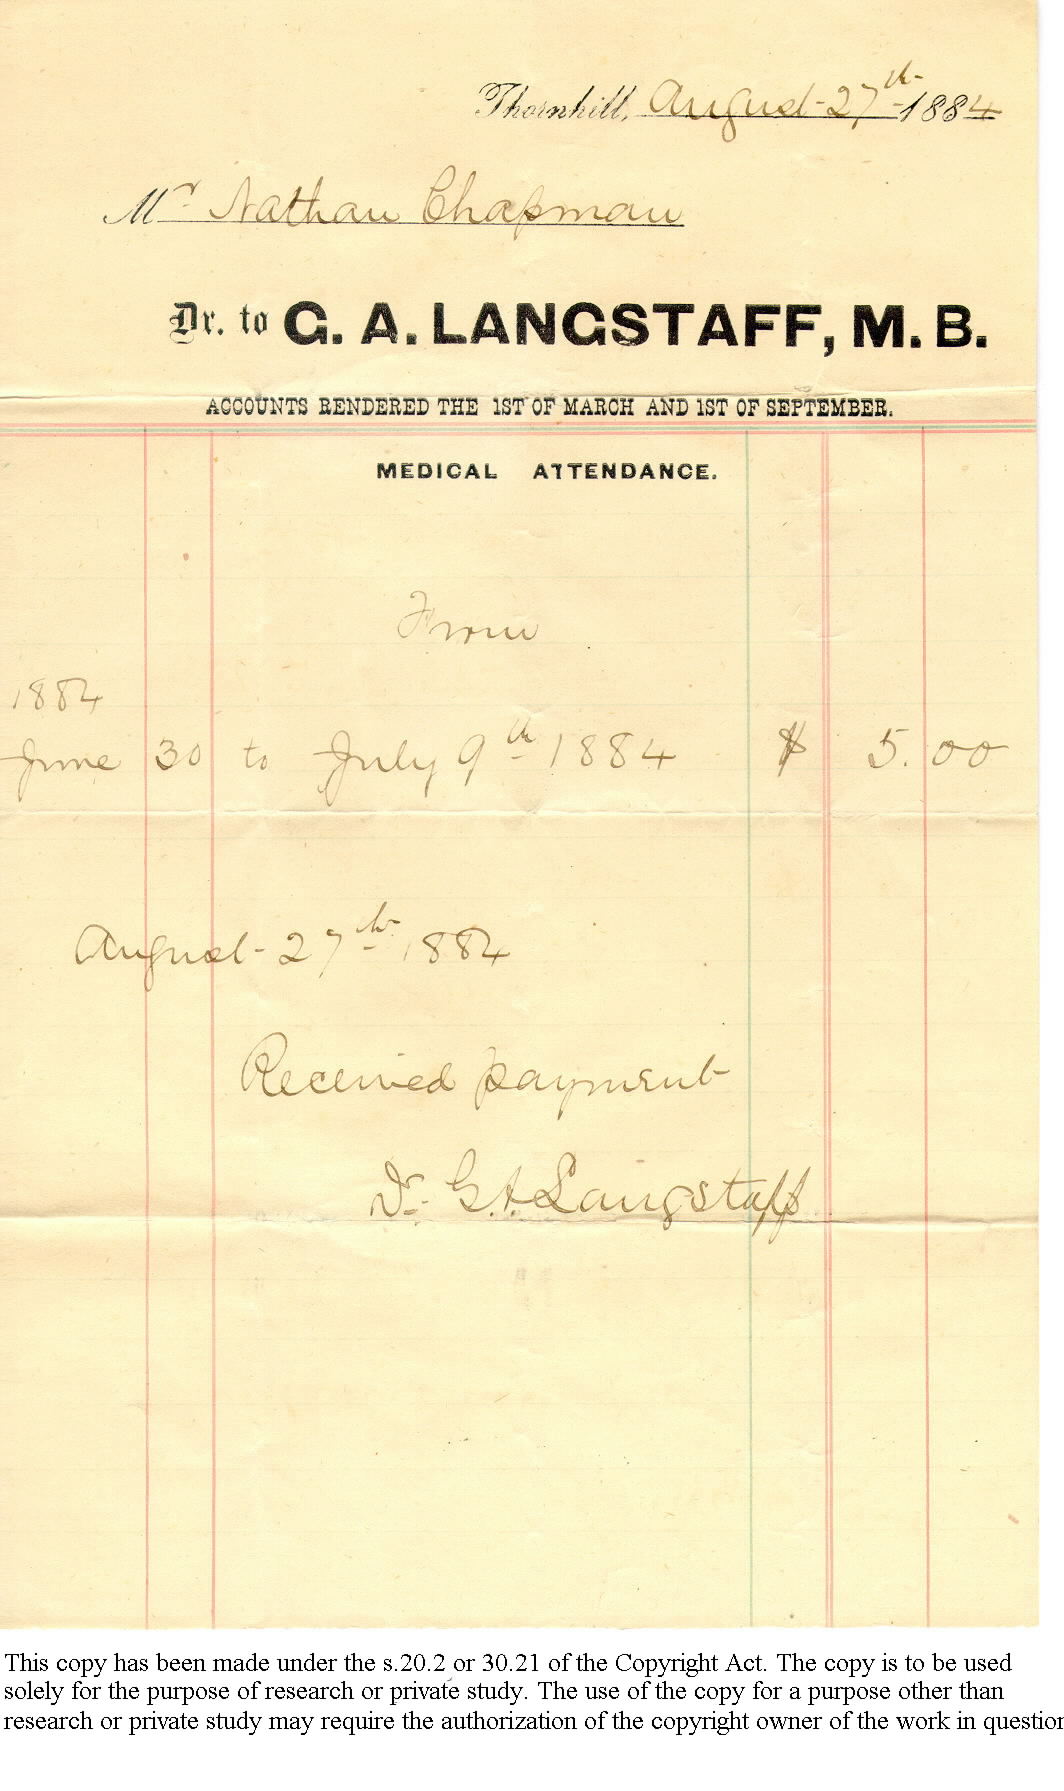 Thornhill, August 27th 1884
Mr Nathan Chapman
Dr. to G. A. LANGSTAFF, M. B.
ACCOUNTS RENDERED THE 1ST OF MARCH AND 1ST OF SEPTEMBER.
MEDICAL ATTENDANCE.
From
1884
June 30 to July 9th 1884 $ 5.00
August 27th 1884
Received payment
Dr. G. A. Langstaff
This copy has been made under the s.20.2 or 30.21 of the Copyright Act. The copy is to be used
solely for the purpose of research or private study. The use of the copy for a purpose other than
research or private study may require the authorization of the copyright owner of the work in question